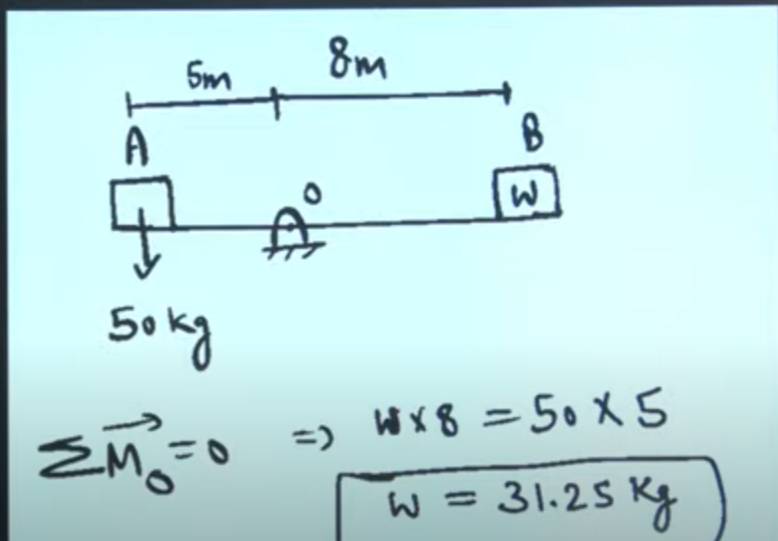 5m 8m
A B
O W
50 kg
∑M⃗₀ = 0 ⇒ W × 8 = 50 × 5
W = 31.25 Kg